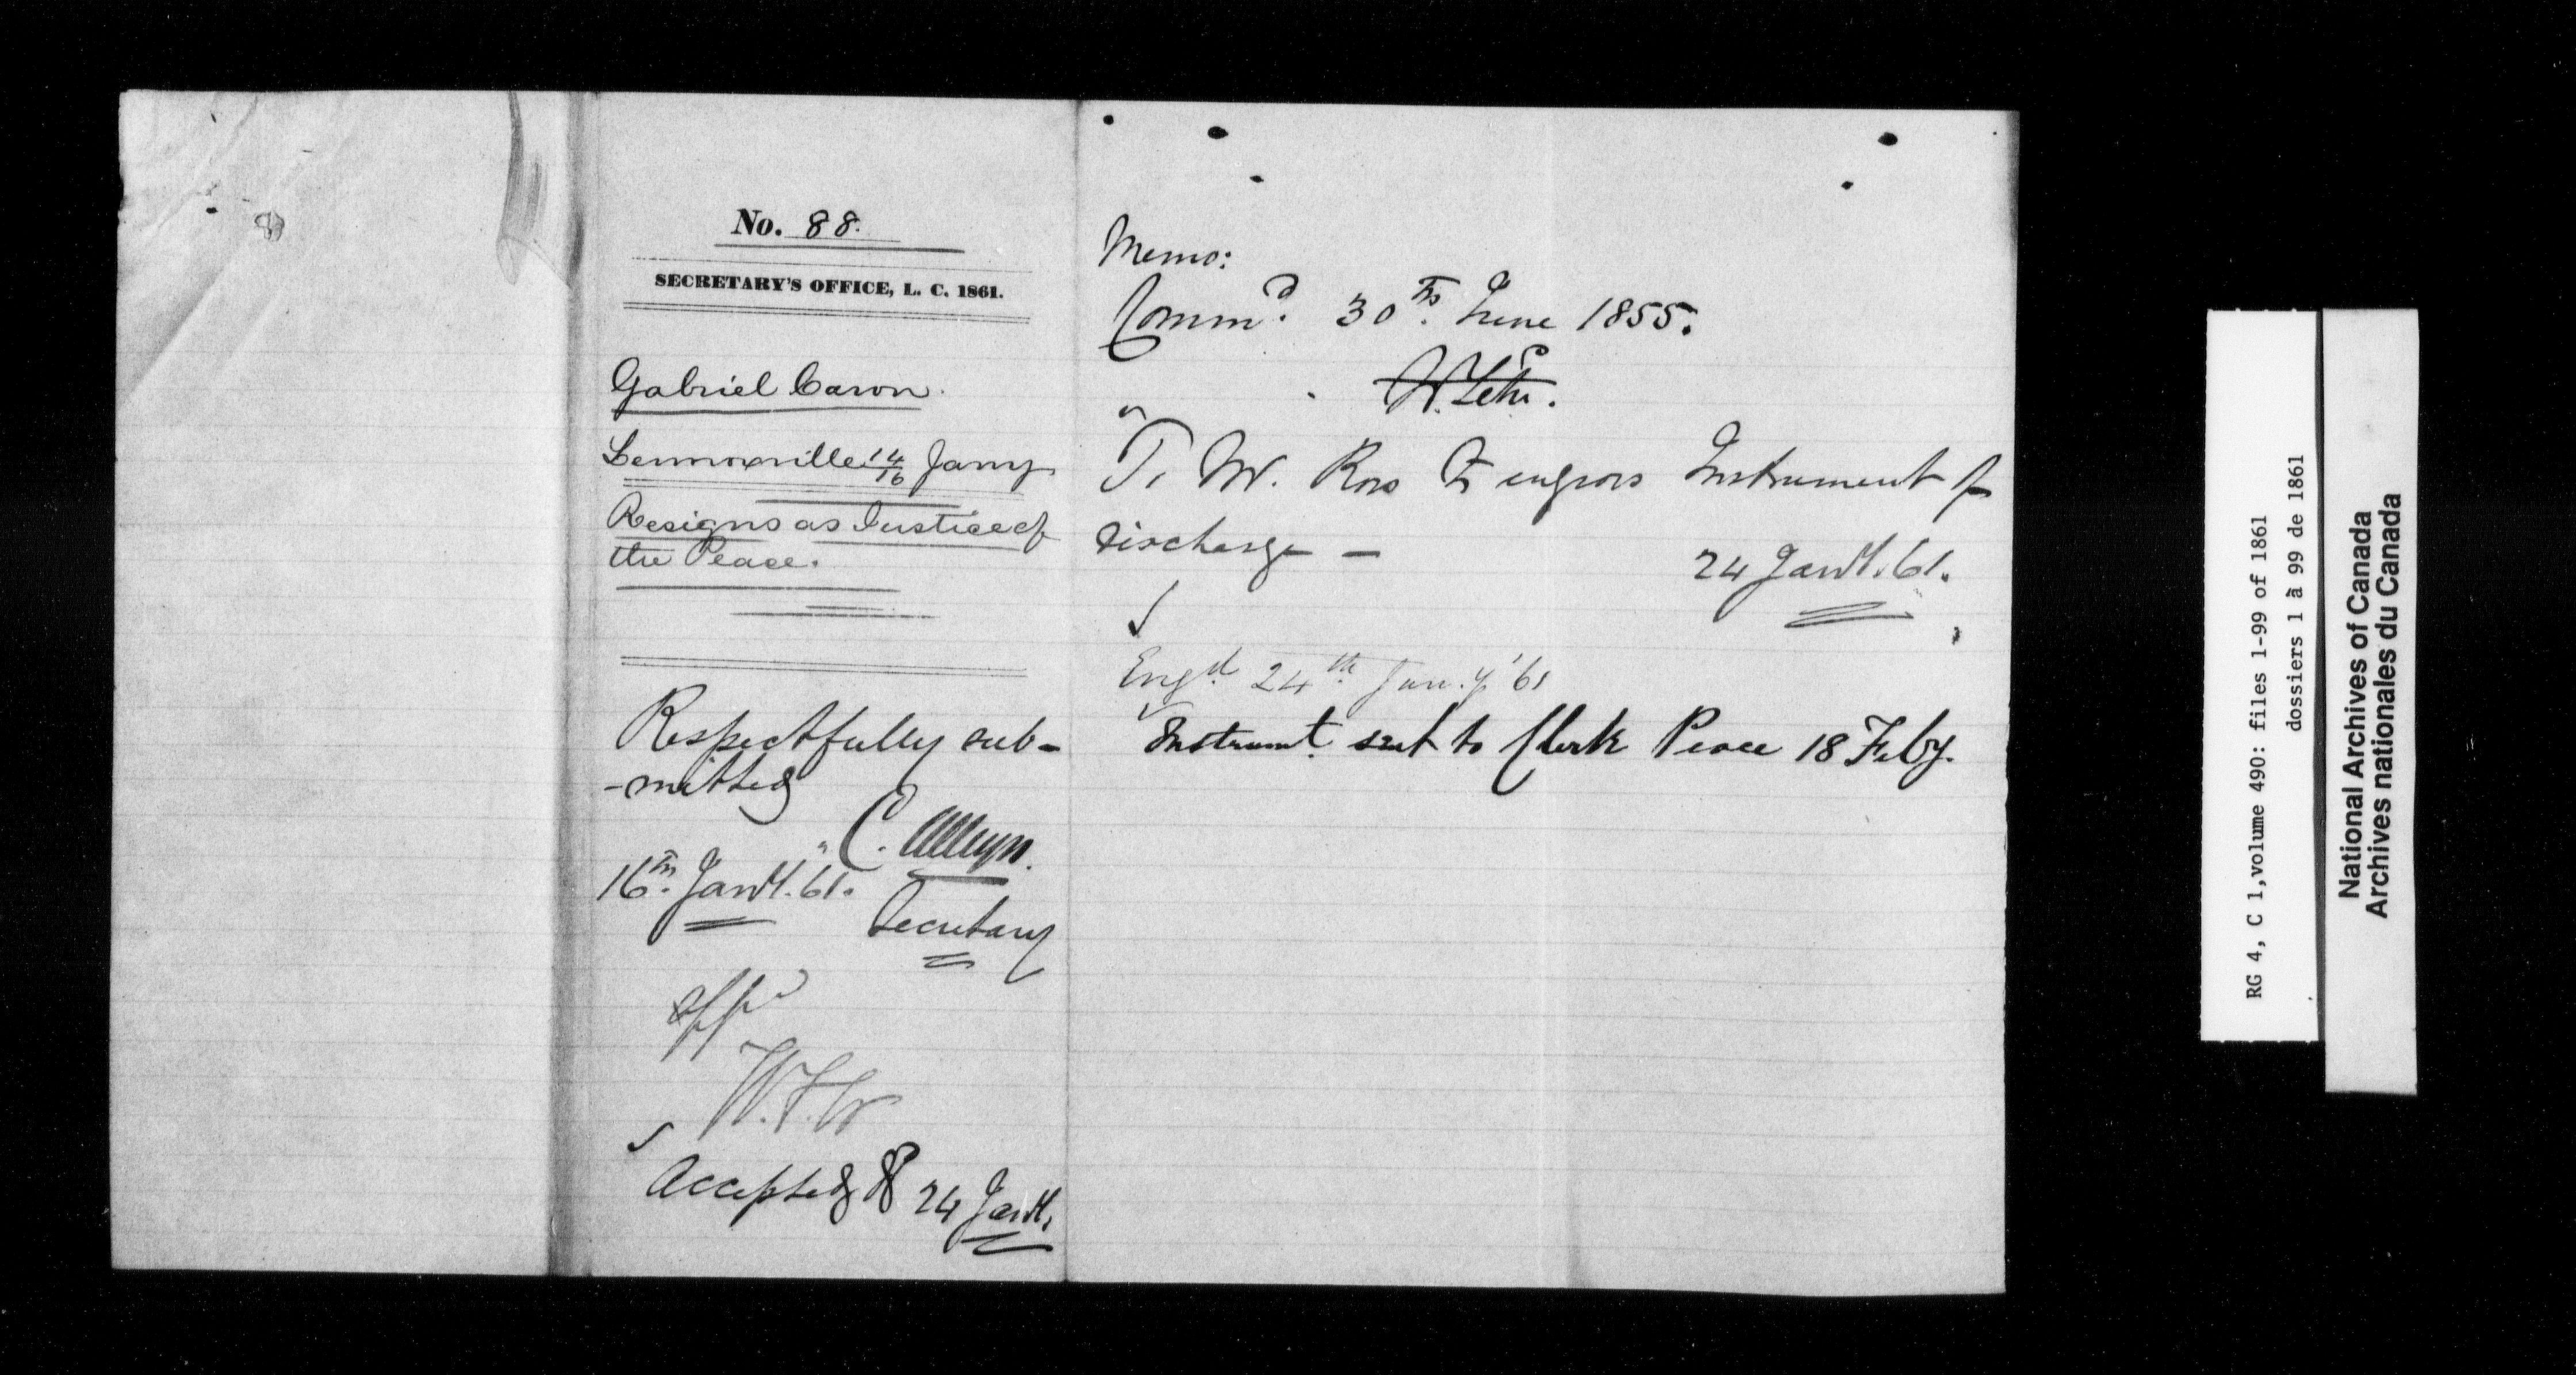 No. 88.
SECRETARY'S OFFICE, L. C. 1861.
Gabriel Caron.
Lennoxville 14/16 Jany
Resigns as Justice of
the Peace.
Respectfully sub-
-mitted
C. Alleyn.
16th. Jany. 61.
Secretary
appd
Accepted 24 Jany.
Memo:
Commd. 30th. June 1855.
To Mr. Ross to engross Instrument of
discharge —
24 Jany. 61.
Engd. 24th. Jan.y '61
Instrumt. sent to Clerk Peace 18 Feby.
RG 4, C 1,volume 490: files 1-99 of 1861
dossiers 1 à 99 de 1861
National Archives of Canada
Archives nationales du Canada